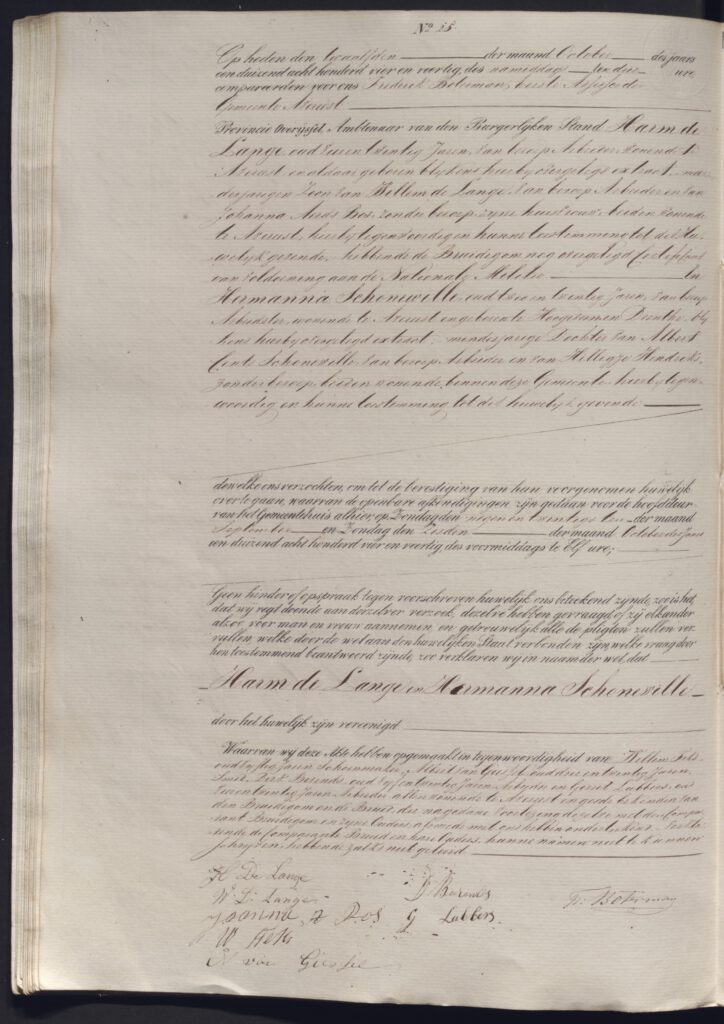 No 15.
Op heden den twaalfden der maand October des jaars
een duizend acht honderd vier en veertig, des namiddags ten drie ure,
compareerden voor ons Frederik Boterman, eerste Assessor de
Gemeente Avereest
Provincie Overijssel Ambtenaar van den Burgerlijken Stand Harm de
Lange, oud en twintig Jaren van beroep Arbeider wonende te
Avereest en aldaar geboren blijkens hierbij overgelegd extract, min-
derjarigen Zoon van Willem de Lange van beroep Arbeider en van
Johanna Bos, zonder beroep, zijne huisvrouw beiden wonende
te Avereest, hierbij tegenwoordig en hunne toestemming tot dit Hu-
welijk gevende, hebbende de Bruidegom nog overgelegd Certificaat
van voldoening aan de Nationale Militie En
Hermanna Schonewille oud twee en twintig Jaren van beroep
Arbeidster, wonende te Avereest en geboren te Hoogeveen Drenthe, blij
kens hierbij overgelegd extract, minderjarige Dochter van Albert
Schonewille van beroep Arbeider en van Hendriks
zonder beroep, beiden wonende, binnen deze Gemeente hierbij tegen-
woordig en hunne toestemming tot dit huwelijk gevende
dewelke ons verzochten, om tot de bevestiging van hun voorgenomen huwelijk
over te gaan, waarvan de openbare afkondigingen zijn gedaan voor de hoofddeur
van het Gemeentehuis alhier op Zondag den negen en twintigsten der maand
September en Zondag den Zesden der maand October des jaars
een duizend acht honderd vier en veertig des voormiddags te Elf ure;
Geen hinder of opspraak tegen voorschreven huwelijk ons betoekend zijnde, zoo is het,
dat wij regt doende aan derzelver verzoek, dezelve hebben gevraagd of zij elkander
alzoo voor man en vrouw aannemen, en getrouwelijk alle de pligten zullen ver-
vullen, welke door de wet aan den huwelijken Staat verbonden zijn, welke vraag door
hen toestemmend beantwoord zijnde, zoo verklaren wij in naam der wet, dat
Harm de Lange en Hermanna Schonewille
door het huwelijk zijn vereenigd
Waarvan wij deze Akte hebben opgemaakt in tegenwoordigheid van Willem
oud Jaren Schoenmaker, Albert van Giessel oud drie en twintig Jaren
Smit, Derk Berends oud vijf en twintig Jaren en Gerrit Lubbers, en
en twintig Jaren Arbeider allen wonende te Avereest
den Bruidegom en de Bruid, die na gedane Voorlezing dezelve met de Compa-
rant Bruidegom en zijne Ouders, alsmede met ons hebben onderteekend
de Comparante Bruid en hare Ouders, hunne namen niet te kunnen
schrijven, hebbende zulks niet geleerd
H De Lange
W De Lange
D Berends
Boterman
Bos
G Lubbers
W
A van Giessel